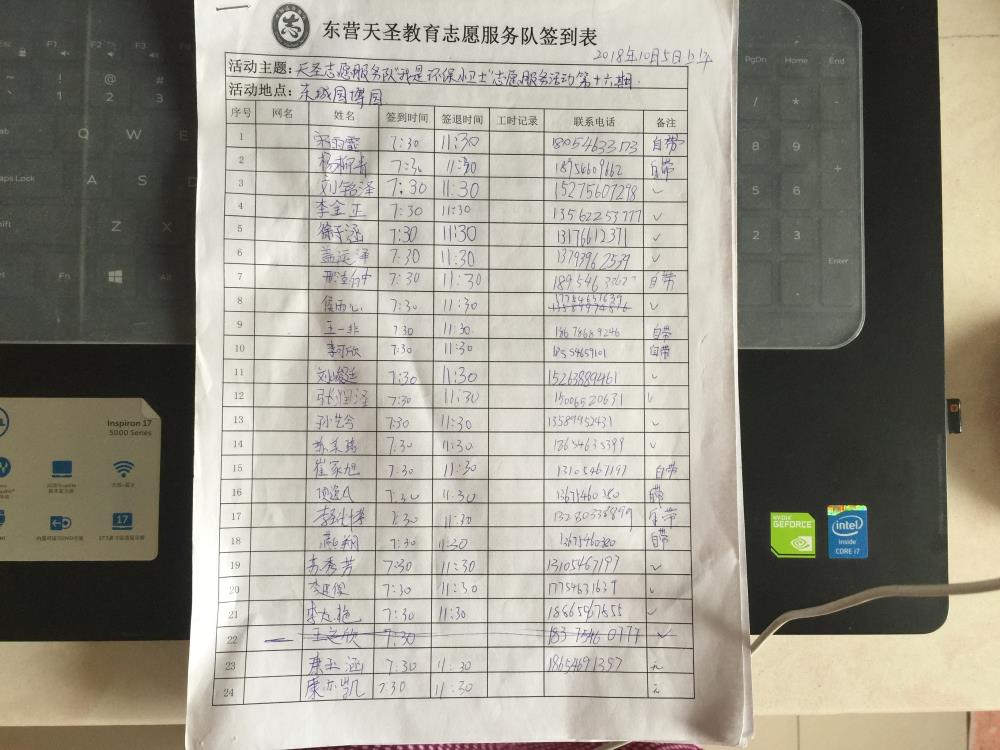 东营天圣教育志愿服务队签到表
2018年10月5日上午
活动主题：天圣志愿服务队"我是环保小卫士"志愿服务活动第十六期.
活动地点：东城园博园
序号 网名 姓名 签到时间 签退时间 工时记录 联系电话 备注
1 7:30 11:30 18054633173 自带
2 杨柳青 7:30 11:30 18954609662 自带
3 刘铭泽 7:30 11:30 15275607298 ✓
4 李金正 7:30 11:30 13562253777 ✓
5 徐子涵 7:30 11:30 13176612371 ✓
6 盖运泽 7:30 11:30 13793962539 ✓
7 7:30 11:30 自带
8 侯雨心 7:30 11:30 17754631639 ✓
9 王一非 7:30 11:30 18678689246 自带
10 李可欣 7:30 11:30 18554659101 自带
11 刘峻廷 7:30 11:30 15263889461 ✓
12 张润泽 7:30 11:30 15006520631 ✓
13 7:30 11:30 13589952431 ✓
14 7:30 11:30 18654635399 ✓
15 崔家旭 7:30 11:30 13105467197 自带
16 7:30 11:30 13671460380 自带
17 7:30 11:30 自带
18 7:30 11:30 13671460380 自带
19 苏秀芳 7:30 11:30 13105467197 ✓
20 7:30 11:30 17754631639 ✓
21 7:30 11:30 18865467555 ✓
22 王之欣 7:30 18375460777 ✓
23 康玉涵 7:30 11:30 18654691357 无
24 康亦凯 7:30 11:30 无
Inspiron 17
5000 Series
NVIDIA
GEFORCE
intel
inside
CORE i7
PgDn Home End
Enter
Caps Lock
Q W E
A S D
Z X
Fn Alt